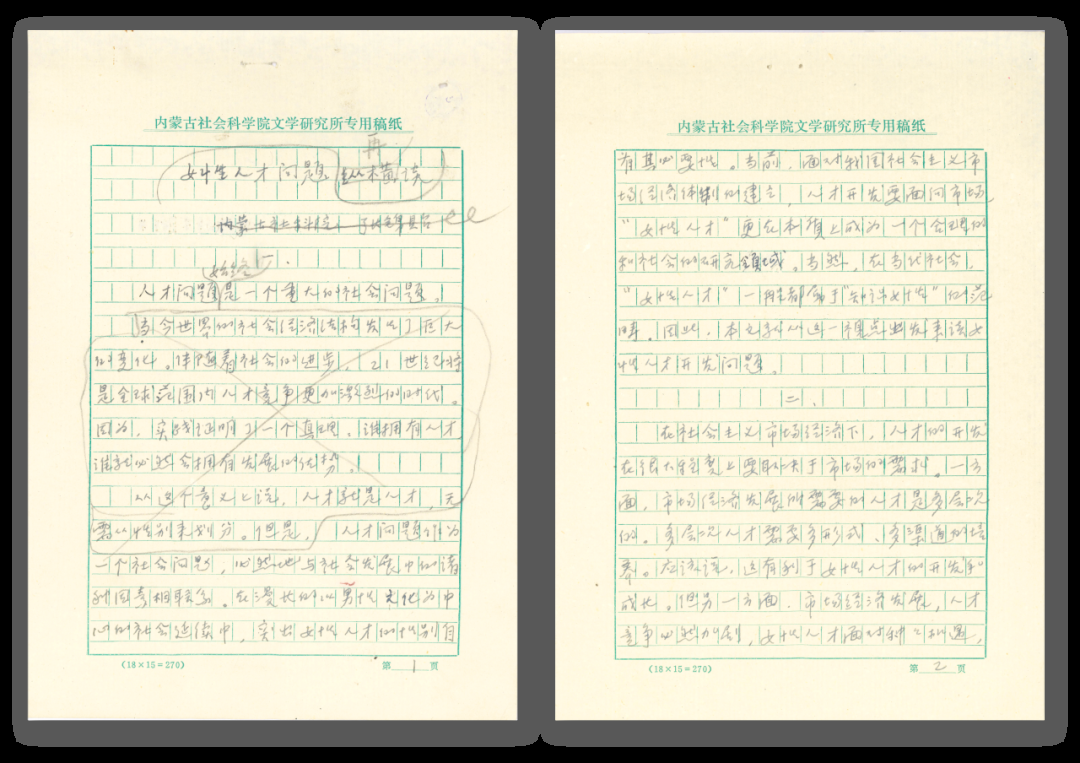 内蒙古社会科学院文学研究所专用稿纸
再
女性人才问题纵横谈
内蒙
始终
一、
人才问题是一个重大的社会问题。
当今世界的社会经济结构发生了巨大
的变化。伴随着社会的进步，21世纪将
是全球范围内人才竞争更加激烈的时代。
因为，实践证明了一个真理。谁拥有人才，
谁就必然会拥有发展的优势。
从这个意义上说，人才就是人才，无
需以性别来划分。但是，人才问题作为
一个社会问题，必然地与社会发展中的诸
种因素相联系。在漫长的以男性文化为中
心的社会延续中，突出女性人才的性别自
(18×15=270)
第1页
内蒙古社会科学院文学研究所专用稿纸
有其必要性。当前，面对我国社会主义市
场经济体制的建立，人才开发要面向市场
“女性人才”更在本质上成为一个合理的
和社会的研究领域。当然，在当代社会，
“女性人才”一般都属于“知识女性”的范
畴。因此，本文将从这一视点出发来谈女
性人才开发问题。
二、
在社会主义市场经济下，人才的开发
在很大程度上要取决于市场的需求。一方
面，市场经济发展所需要的人才是多层次
的。多层次人才需要多形式、多渠道的培
养。应该说，这有利于女性人才的开发和
成长。但另一方面，市场经济发展，人才
竞争必然加剧，女性人才面对种种机遇，
(18×15=270)
第2页